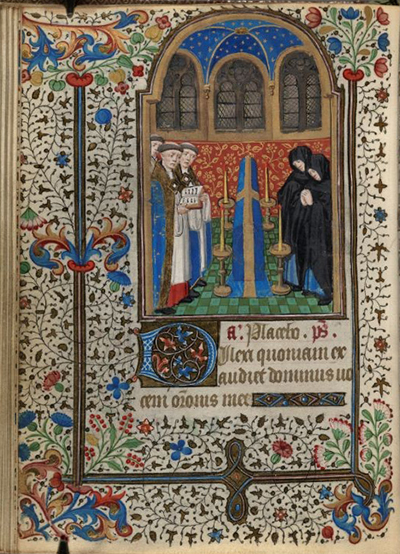 a. Placebo. ps.
Dilexi quoniam ex
audiet dominus uo
cem oronis mee